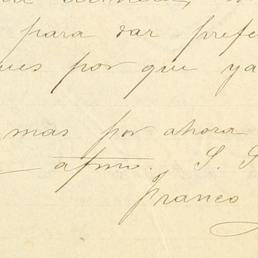 para dar prefe
ues por que ya
mas por ahora
afmo. S. S
Franco